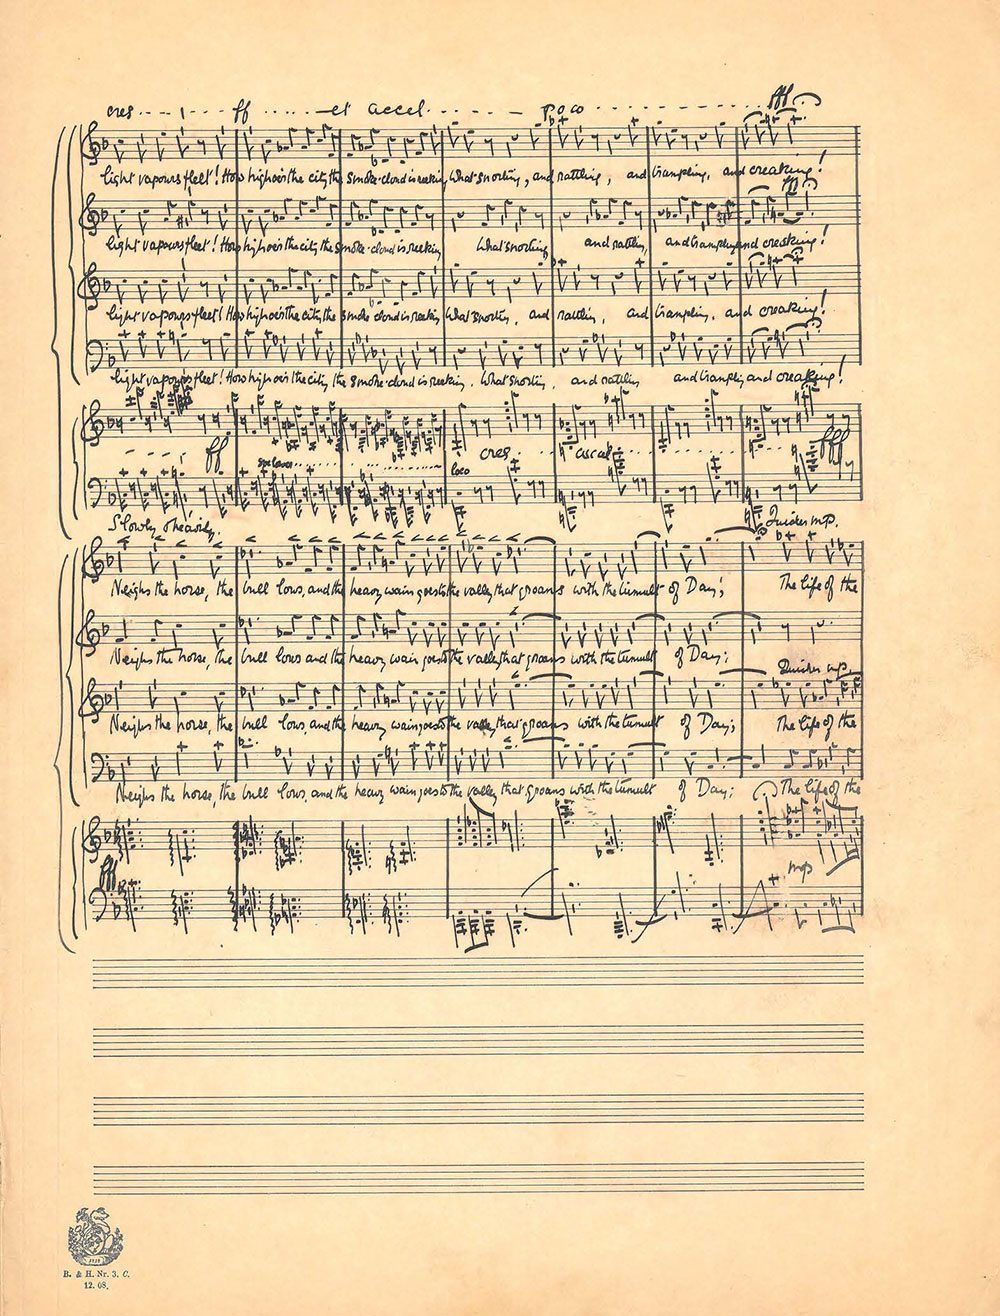 cres - - - - - ff - - - et accel - - - - - poco - - - - - fff
light vapours fleet! How high o'er the city, the smoke-cloud is reeking, What snorting, and rattling, and trampling, and creaking!
fff
light vapours fleet! How high o'er the city, the smoke-cloud is reeking What snorting and rattling, and trampling and creaking!
light vapours fleet! How high o'er the city, the smoke cloud is reeking What snorting, and rattling, and trampling, and creaking!
light vapours fleet! How high o'er the city, the smoke-cloud is reeking, What snorting, and rattling and trampling and creaking!
ff cres - - - - fff
loco
Slowly & heavily. Quicker mp.
Neighs the horse, the bull lows, and the heavy wain goes to the valley that groans with the tumult of Day; The life of the
Neighs the horse, the bull lows and the heavy wain goes to the valley that groans with the tumult of Day;
Quicker mp.
Neighs the horse, the bull lows, and the heavy wain goes to the valley that groans with the tumult of Day; The life of the
Neighs the horse, the bull lows, and the heavy wain goes to the valley that groans with the tumult of Day; The life of the
fff mp
B. & H. Nr. 3. C.
12. 08.